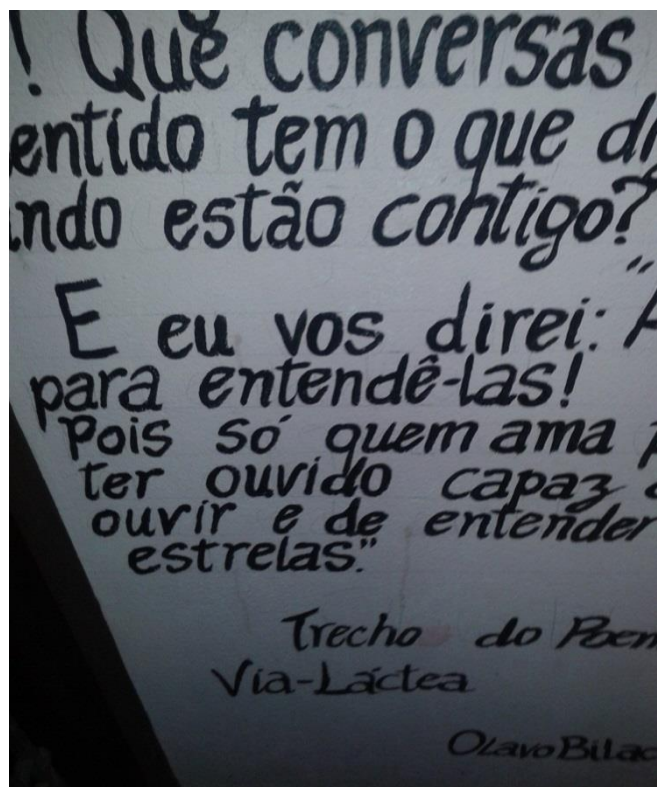 ! Que conversas
entido tem o que di
ndo estão contigo?
E eu vos direi: A
para entendê-las!
"Pois só quem ama p
ter ouvido capaz
ouvir e de entender
estrelas."
Trecho do Poem
Via-Láctea
Olavo Bilac